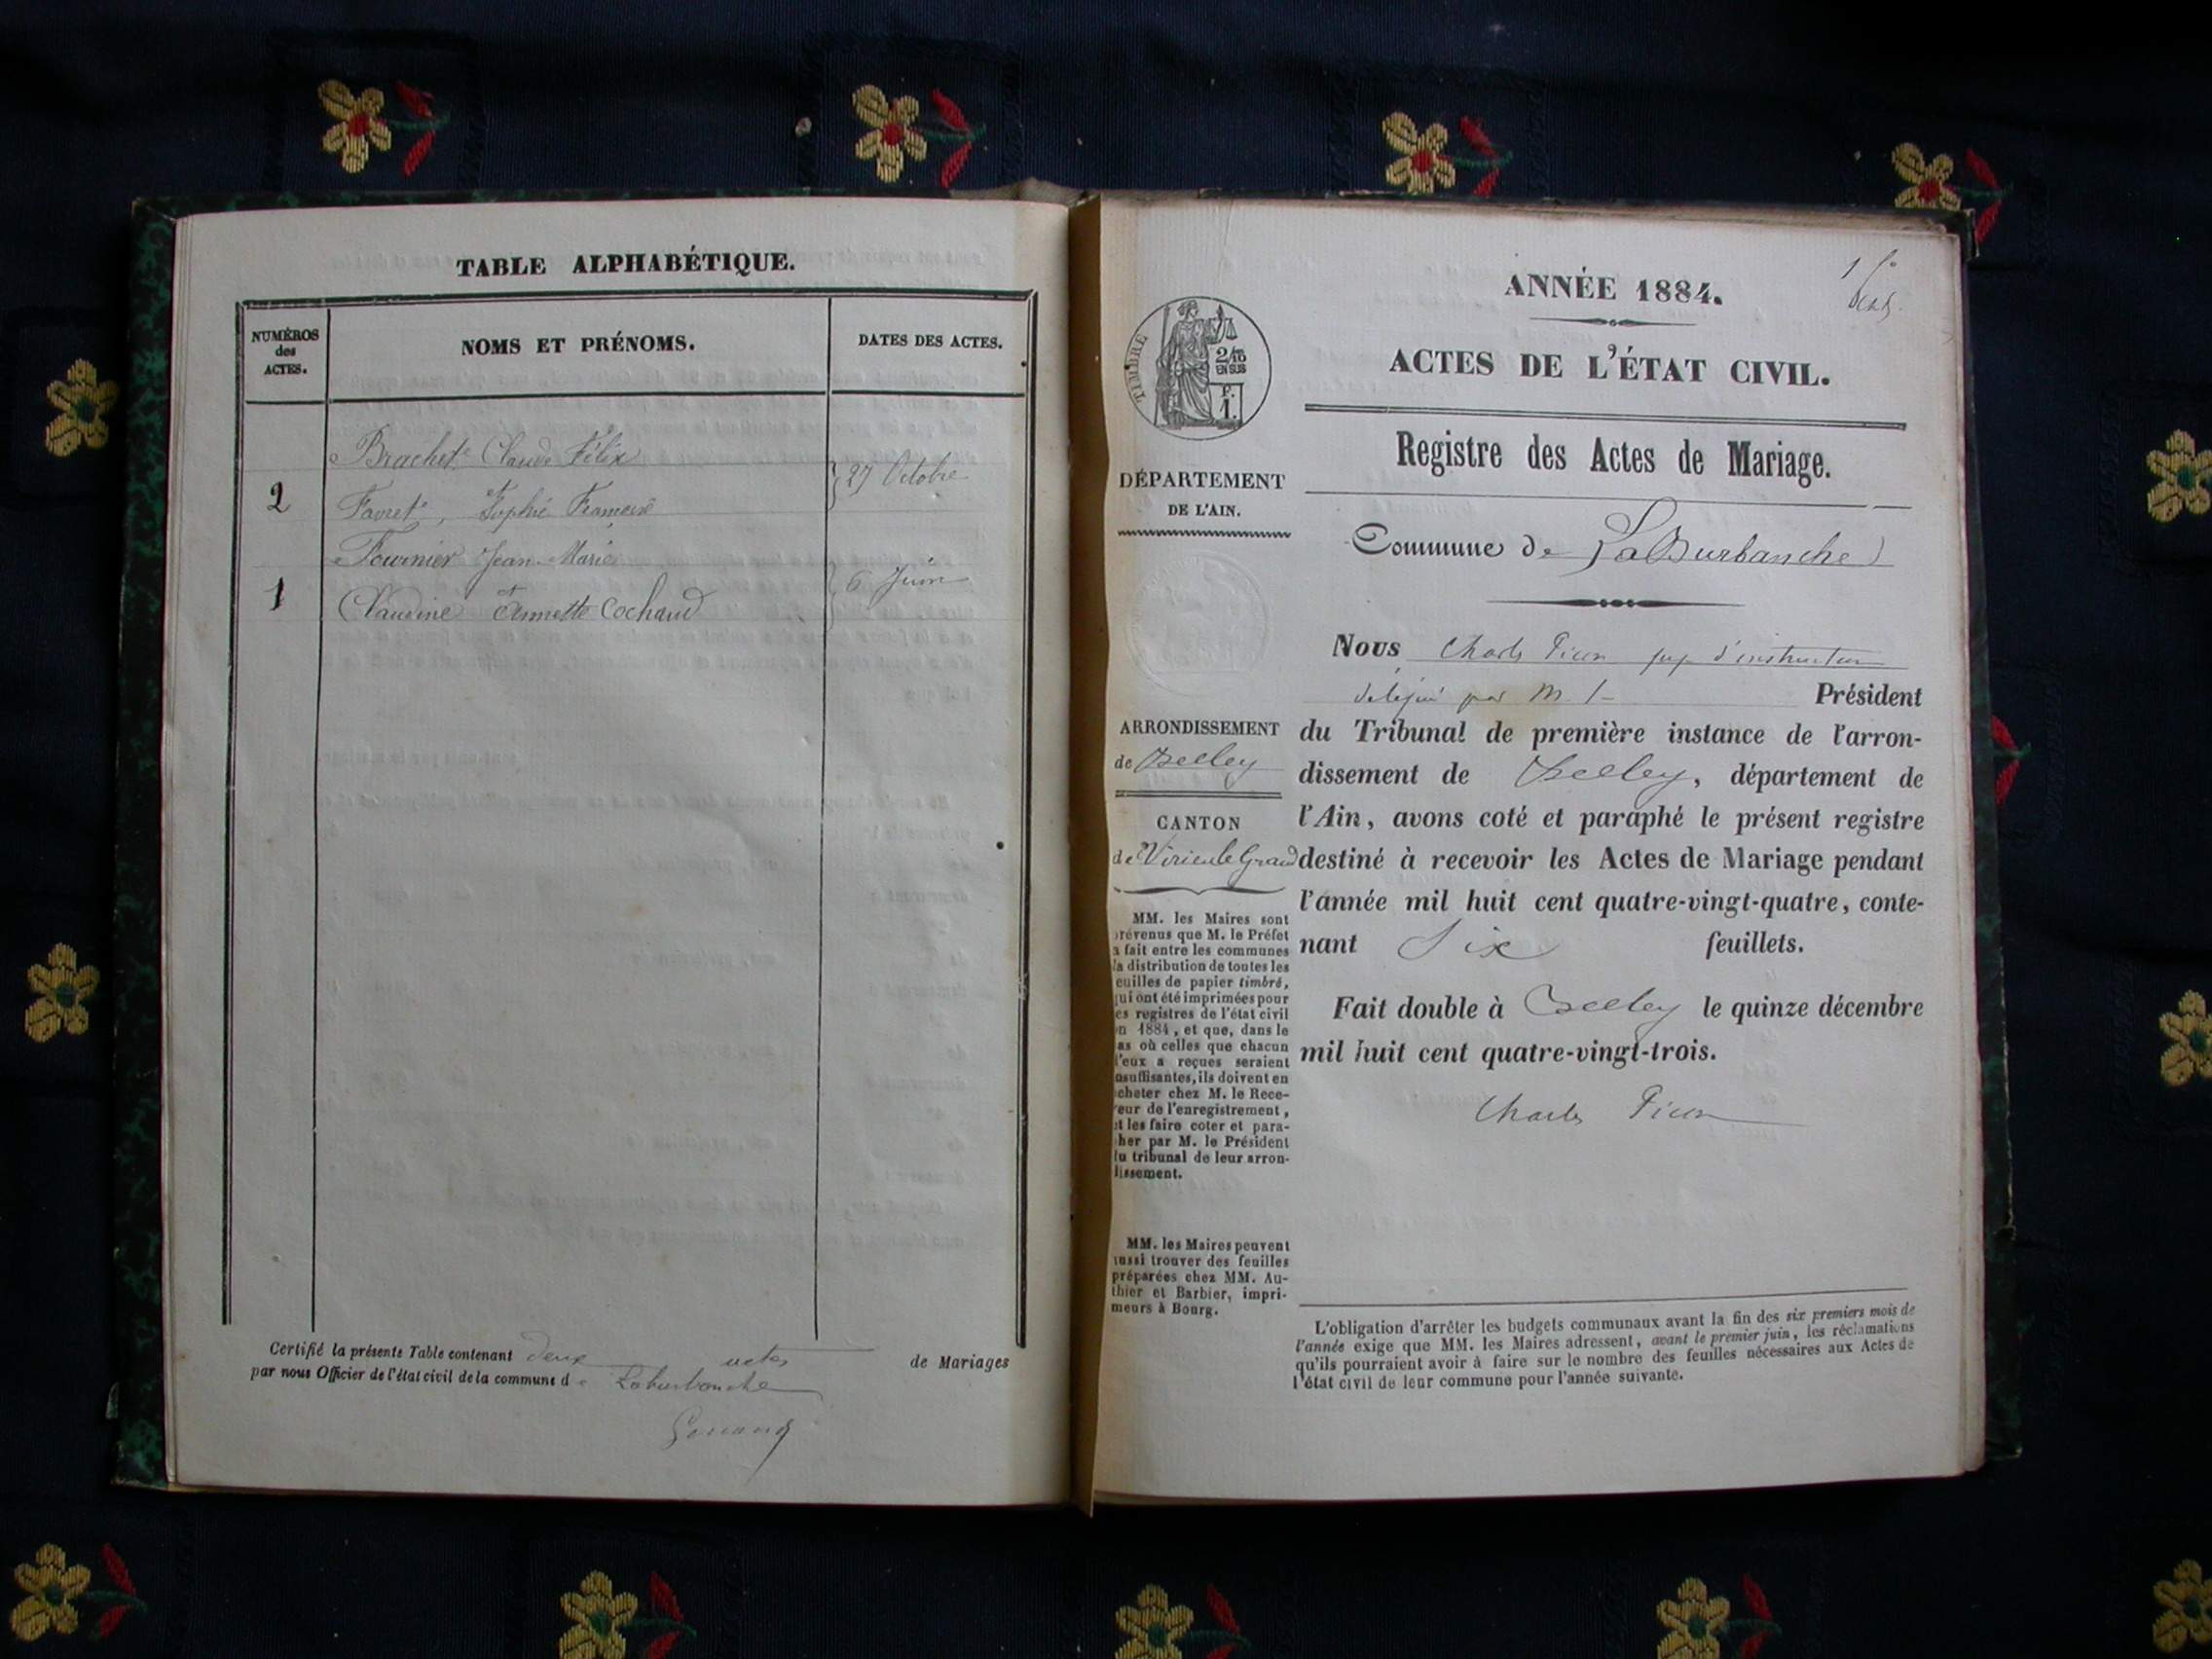 TABLE ALPHABÉTIQUE.
NUMÉROS
des
ACTES.
NOMS ET PRÉNOMS.
DATES DES ACTES.
Brachet Claude Félix
27 Octobre
2
et
Favret, Sophie
Fournier Jean-Marie
6 Juin
1
et
Claudine Annette Cochaud
Certifié la présente Table contenant deux actes de Mariages
par nous Officier de l'état civil de la commune de Laburbanche
ANNÉE 1884.
ACTES DE L'ÉTAT CIVIL.
Registre des Actes de Mariage.
Commune de LaBurbanche
TIMBRE
2/10
EN SUS
F.
1.
DÉPARTEMENT
DE L'AIN.
ARRONDISSEMENT
de Belley
CANTON
de Virieu le Grand
MM. les Maires sont
prévenus que M. le Préfet
a fait entre les communes
la distribution de toutes les
euilles de papier timbré,
qui ont été imprimées pour
es registres de l'état civil
en 1884, et que, dans le
as où celles que chacun
d'eux a reçues seraient
nsuffisantes, ils doivent en
cheter chez M. le Rece-
eur de l'enregistrement,
t les faire coter et para-
her par M. le Président
du tribunal de leur arron-
dissement.
MM. les Maires peuvent
aussi trouver des feuilles
préparées chez MM. Au-
thier et Barbier, impri-
meurs à Bourg.
Nous Charles Picon juge d'instruction
délégué par M. l Président
du Tribunal de première instance de l'arron-
dissement de Belley, département de
l'Ain, avons coté et paraphé le présent registre
destiné à recevoir les Actes de Mariage pendant
l'année mil huit cent quatre-vingt-quatre, conte-
nant Six feuillets.
Fait double à Belley le quinze décembre
mil huit cent quatre-vingt-trois.
Charles Picon
L'obligation d'arrêter les budgets communaux avant la fin des six premiers mois de
l'année exige que MM. les Maires adressent, avant le premier juin, les réclamations
qu'ils pourraient avoir à faire sur le nombre des feuilles nécessaires aux Actes de
l'état civil de leur commune pour l'année suivante.